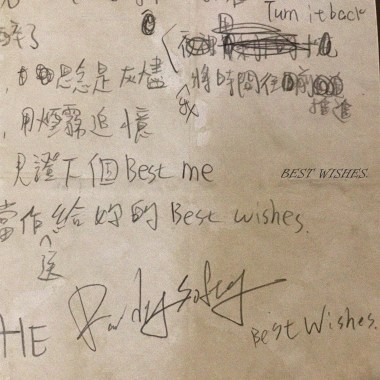 Turn it back
醉了
思念是灰燼
將時間往前
我
推進
用煙霧追憶
見證下個Best me
BEST WISHES.
當作給妳的Best wishes.
送
HE
Best Wishes.